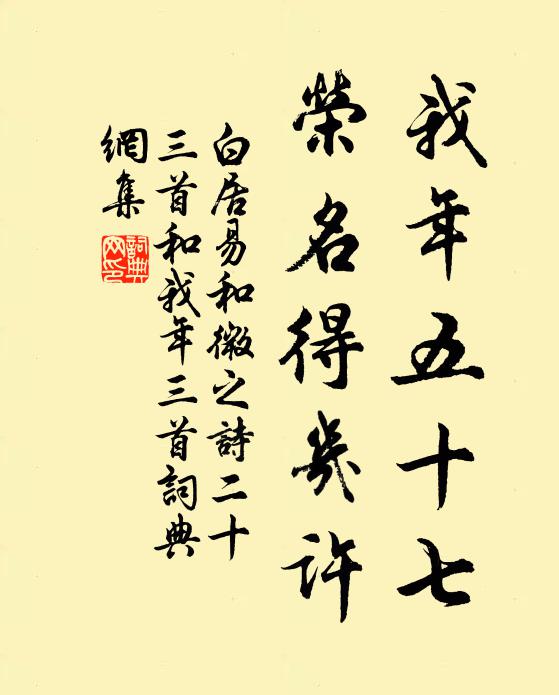 我年五十七
榮名得幾許
白居易和微之詩二十
三首和我年三首詞典
網集
詞典
网印